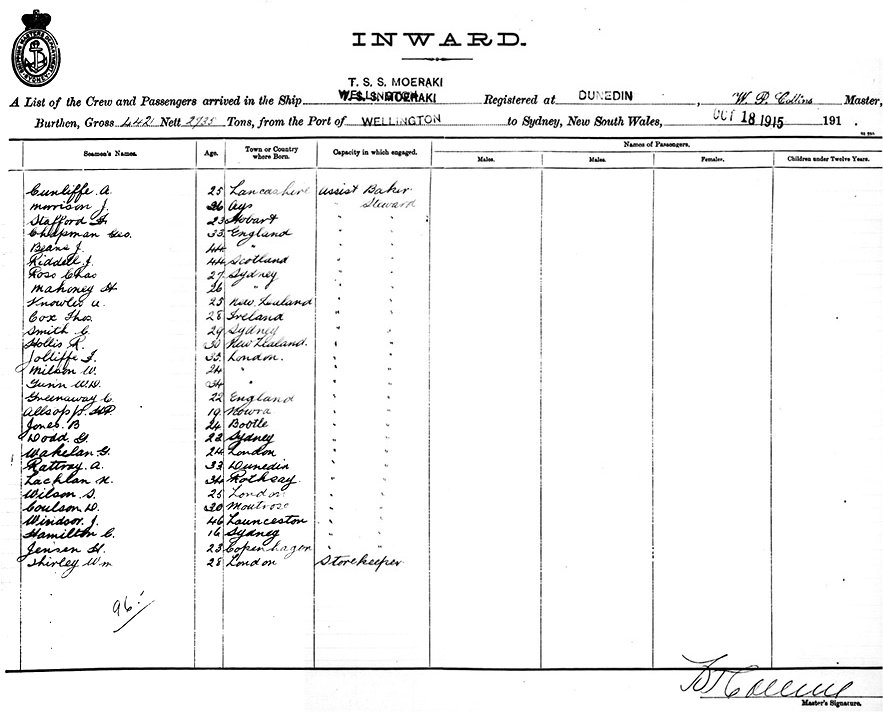 SHIPPING MASTER'S DEPARTMENT SYDNEY
INWARD.
T. S. S. MOERAKI
WELLINGTON
T. S. S. MOERAKI
A List of the Crew and Passengers arrived in the Ship Registered at DUNEDIN, W. P. Collins Master,
Burthen, Gross 4421 Nett 2735 Tons, from the Port of WELLINGTON to Sydney, New South Wales, OCT 18 1915 191 .
Seamen's Names. Age. Town or Country where Born. Capacity in which engaged. Names of Passengers.
Males. Males. Females. Children under Twelve Years.
Cunliffe A. 25 Lancashire Assist Baker
Morrison J. 36 Ays " Steward
Stafford F. 23 Hobart " "
Chapman Geo. 33 England " "
Beans J. 44 " " "
Riddell J. 44 Scotland " "
Ross Chas 27 Sydney " "
Mahoney H 26 " " "
Knowles U. 25 New Zealand " "
Cox Thos. 28 Ireland " "
Smith C. 29 Sydney " "
Hollis R. 30 New Zealand. " "
Jolliffe F. 33 London. " "
Milson W. 24 " " "
Gunn W.D. 34 " " "
Greenaway C. 22 England " "
Allsopp H.P. 19 Nowra " "
Jones B 24 Bootle " "
Dodd G. 22 Sydney " "
Wakelan G. 24 London " "
Rattray A. 33 Dunedin " "
Lachlan N. 34 Rothsay " "
Wilson S. 25 London " "
Coulson D. 30 Montrose " "
Windsor J. 46 Launceston " "
Hamilton C. 16 Sydney " "
Jensen H. 23 Copenhagen " "
Shirley Wm 28 London Storekeeper
96
Master's Signature.